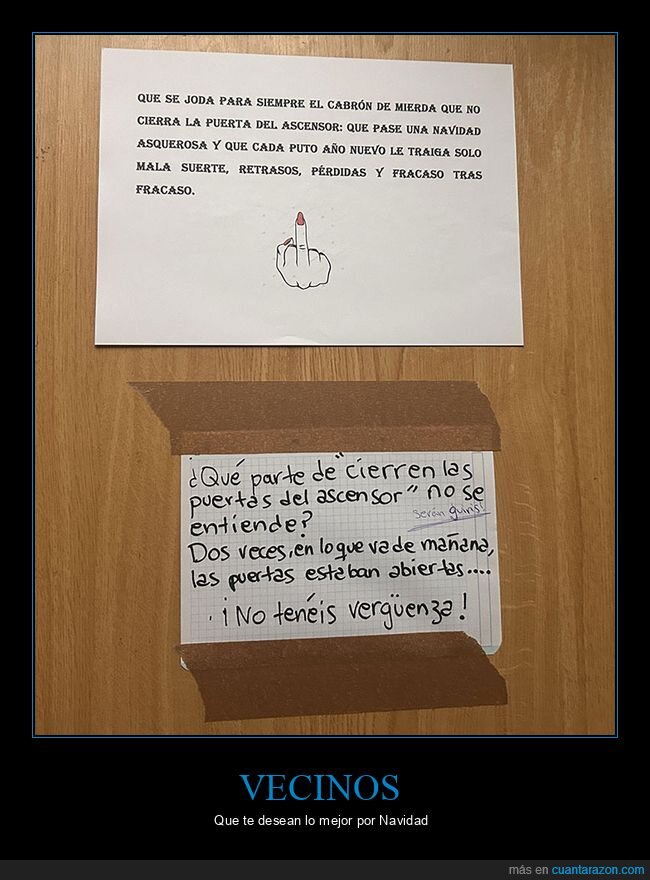 QUE SE JODA PARA SIEMPRE EL CABRÓN DE MIERDA QUE NO
CIERRA LA PUERTA DEL ASCENSOR: QUE PASE UNA NAVIDAD
ASQUEROSA Y QUE CADA PUTO AÑO NUEVO LE TRAIGA SOLO
MALA SUERTE, RETRASOS, PÉRDIDAS Y FRACASO TRAS
FRACASO.
¿Qué parte de "cierren las
puertas del ascensor" no se
serán guiris!
entiende?
Dos veces, en lo que va de mañana,
las puertas estaban abiertas....
¡No tenéis vergüenza!
VECINOS
Que te desean lo mejor por Navidad
más en cuantarazon.com